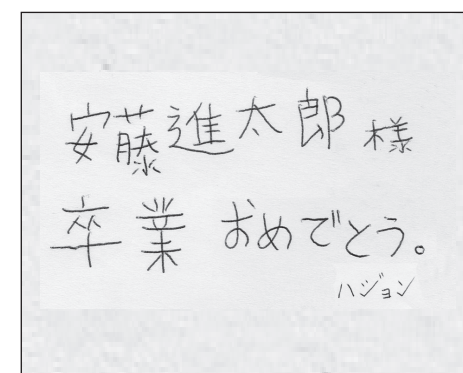 安藤進太郎様
卒業おめでとう。
ハジョン